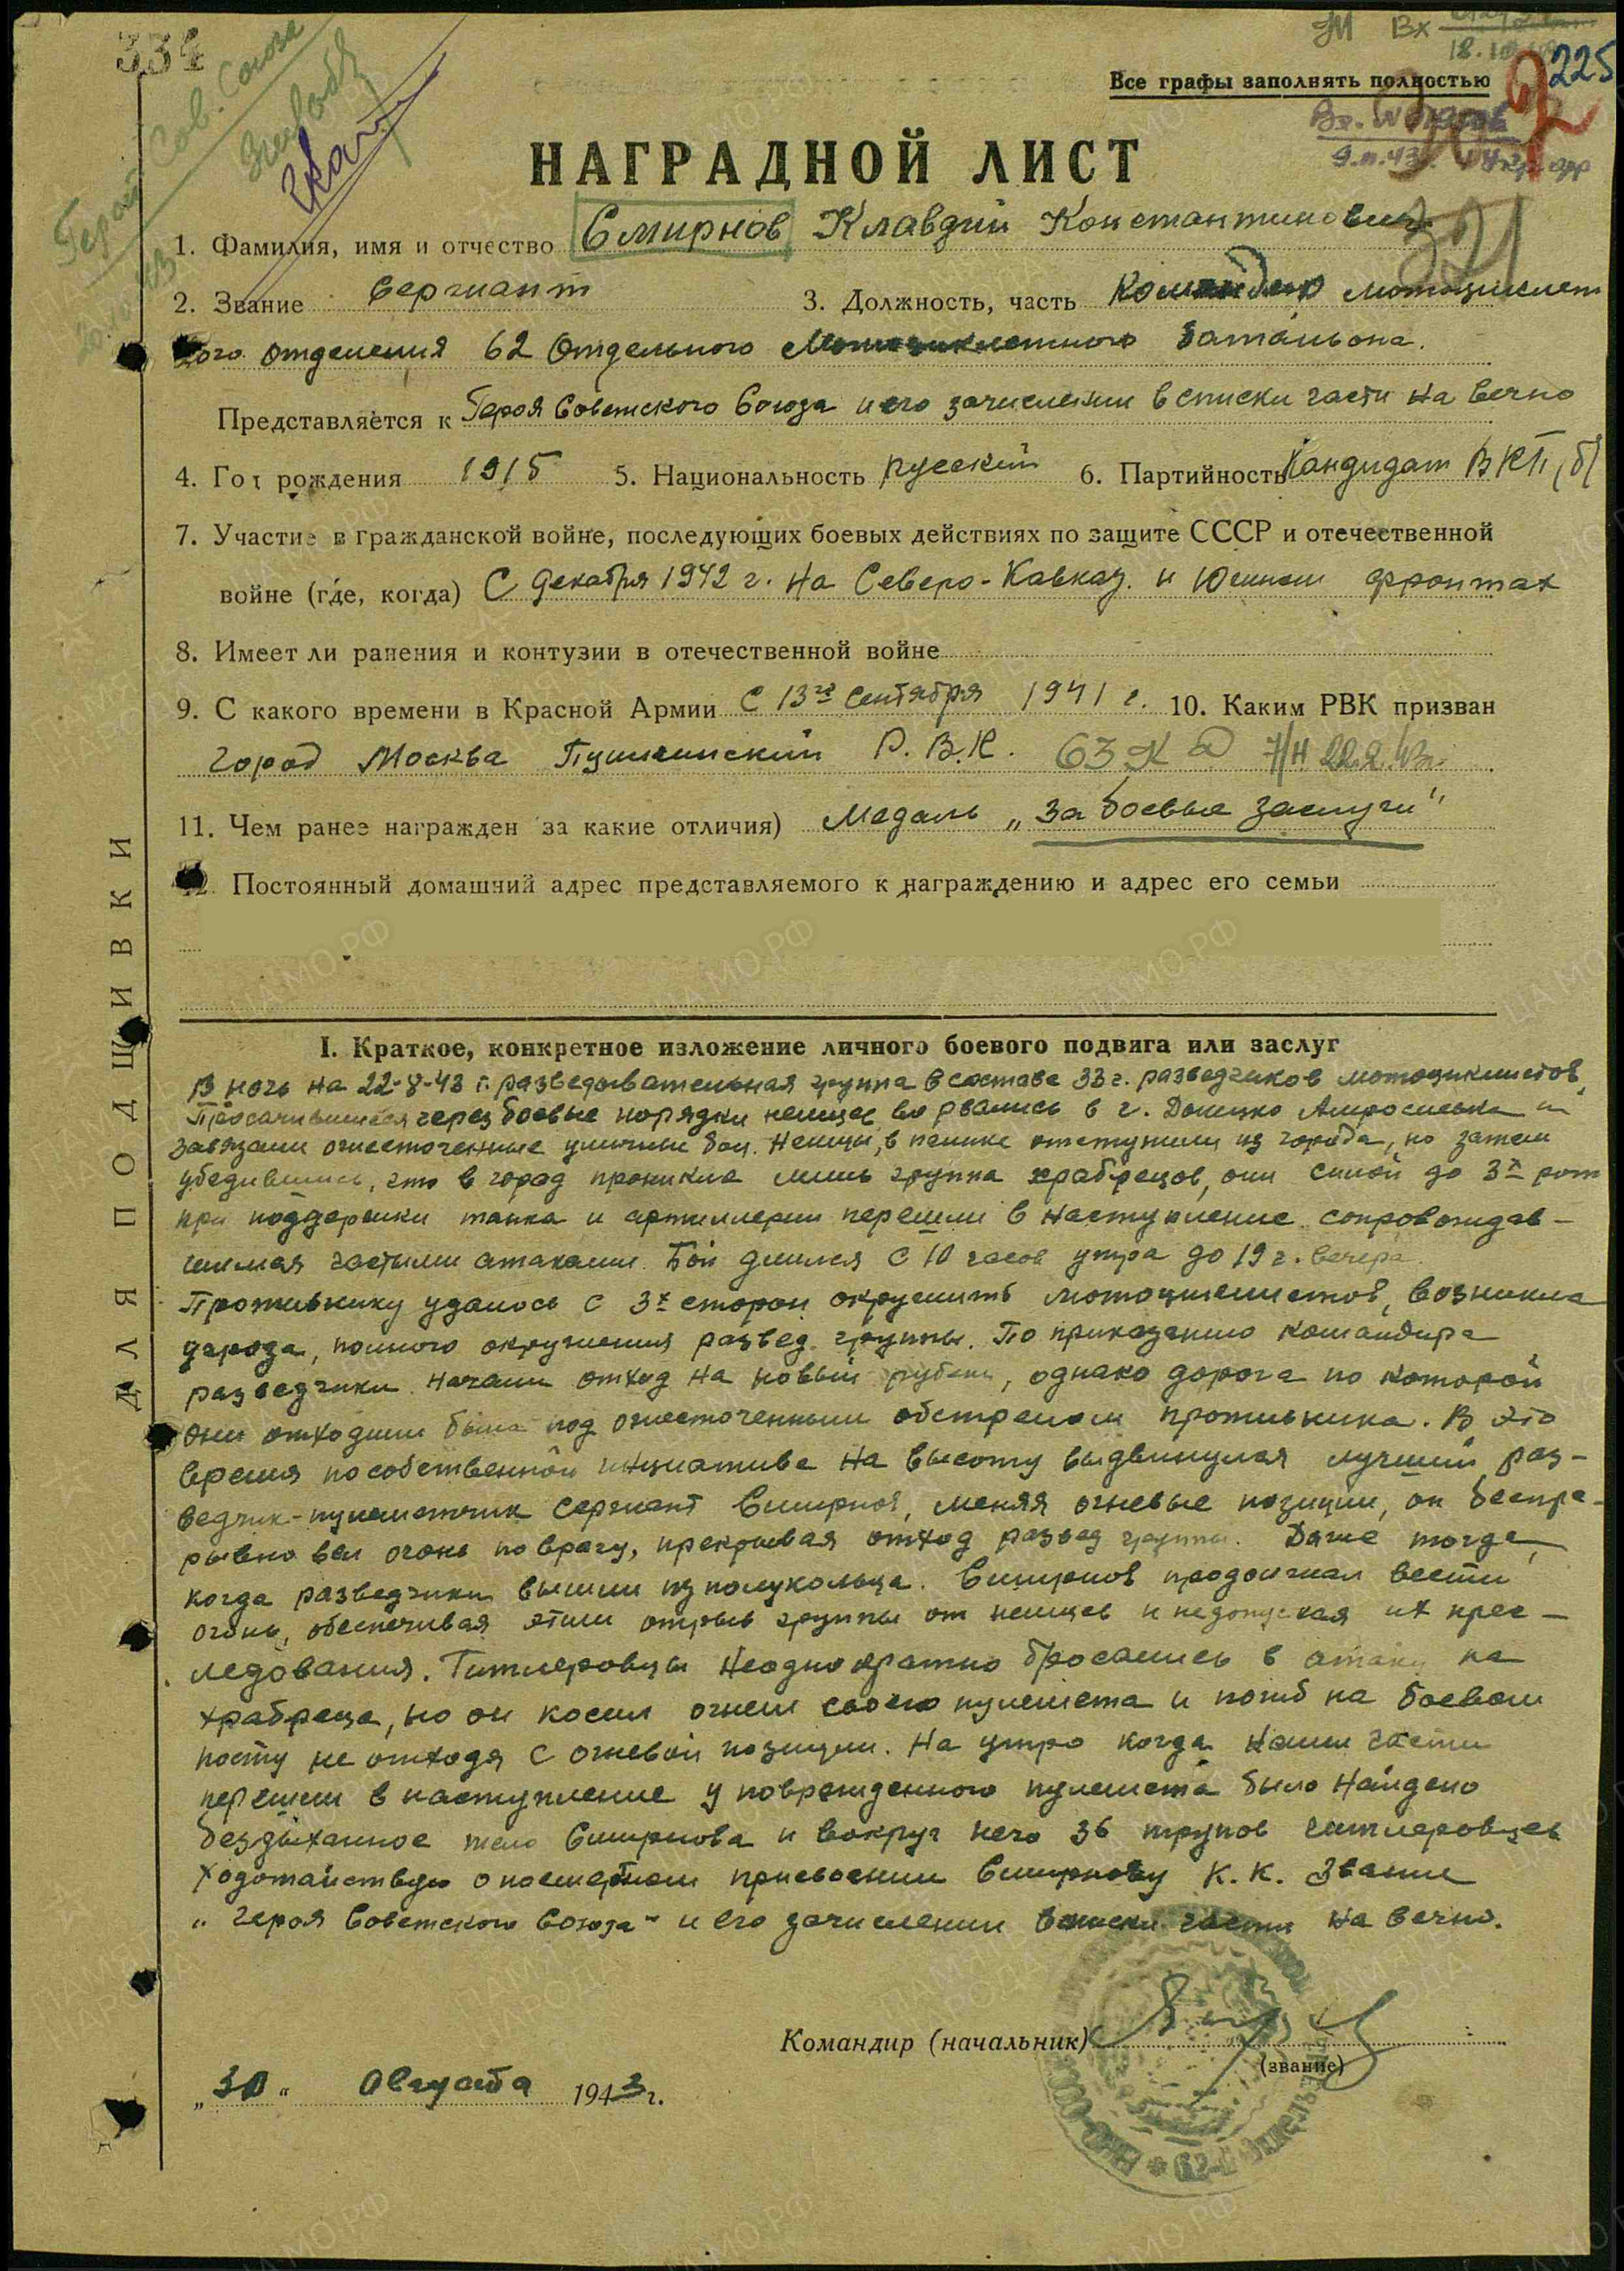 334
Герой Сов. Союза
225
Все графы заполнять полностью
НАГРАДНОЙ ЛИСТ
1. Фамилия, имя и отчество Смирнов Клавдий Константинович
2. Звание Сержант 3. Должность, часть Командир мотоциклет
ного отделения 62 Отдельного Мотоциклетного батальона.
Представляется к Героя Советского Союза и его зачислении в списки части на вечно
4. Год рождения 1915 5. Национальность русский 6. Партийность Кандидат ВКП(б)
7. Участие в гражданской войне, последующих боевых действиях по защите СССР и отечественной
войне (где, когда) С декабря 1942 г. на Северо-Кавказ. и Южном фронтах
8. Имеет ли ранения и контузии в отечественной войне
9. С какого времени в Красной Армии С 13го сентября 1941 г. 10. Каким РВК призван
город Москва Пушкинский Р.В.К.
11. Чем ранее награжден за какие отличия) Медаль „За боевые заслуги"
12. Постоянный домашний адрес представляемого к награждению и адрес его семьи
ДЛЯ ПОДШИВКИ
I. Краткое, конкретное изложение личного боевого подвига или заслуг
В ночь на 22-8-43 г. разведывательная группа в составе 33 г. разведчиков мотоциклистов,
Просачившиеся через боевые порядки немцев ворвались в г. Донецко Амросиевка и
завязали ожесточенные уличные бои. Немцы, в панике отступили из города, но затем
убедившись, что в город проникла лишь группа храбрецов, они силой до 3х рот
при поддержки танка и артиллерии перешли в наступление сопровождав-
шимся частыми атаками. Бой длился с 10 часов утра до 19 ч. вечера.
Противнику удалось с 3х сторон окружить мотоциклистов, возникла
угроза, полного окружения развед. группы. По приказанию командира
разведчики начали отход на новый рубеж, однако дорога по которой
они отходили была под ожесточенным обстрелом противника. В это
время по собственной инциативе на высоту выдвинулся лучший раз-
ведчик-пулеметчик сержант Смирнов, меняя огневые позиции, он беспре-
рывно вел огонь по врагу, прекрывая отход развед группы. Даже тогда,
когда разведчики вышли из полукольца. Смирнов продолжал вести
огонь, обеспечивая этим отрыв группы от немцев и недопуская их прес-
ледования. Гитлеровцы неоднократно бросались в атаку на
храбреца, но он косил огнем своего пулемета и погиб на боевом
посту не отходя с огневой позиции. На утро когда наши части
перешли в наступление у поврежденного пулемета было найдено
бездыханное тело Смирнова и вокруг него 36 трупов гитлеровцев
Ходотайствую о посмертном присвоении Смирнову К. К. Звание
„Героя Советского Союза" и его зачислении в списки части на вечно.
Командир (начальник)
(звание)
„30" Августа 1943 г.